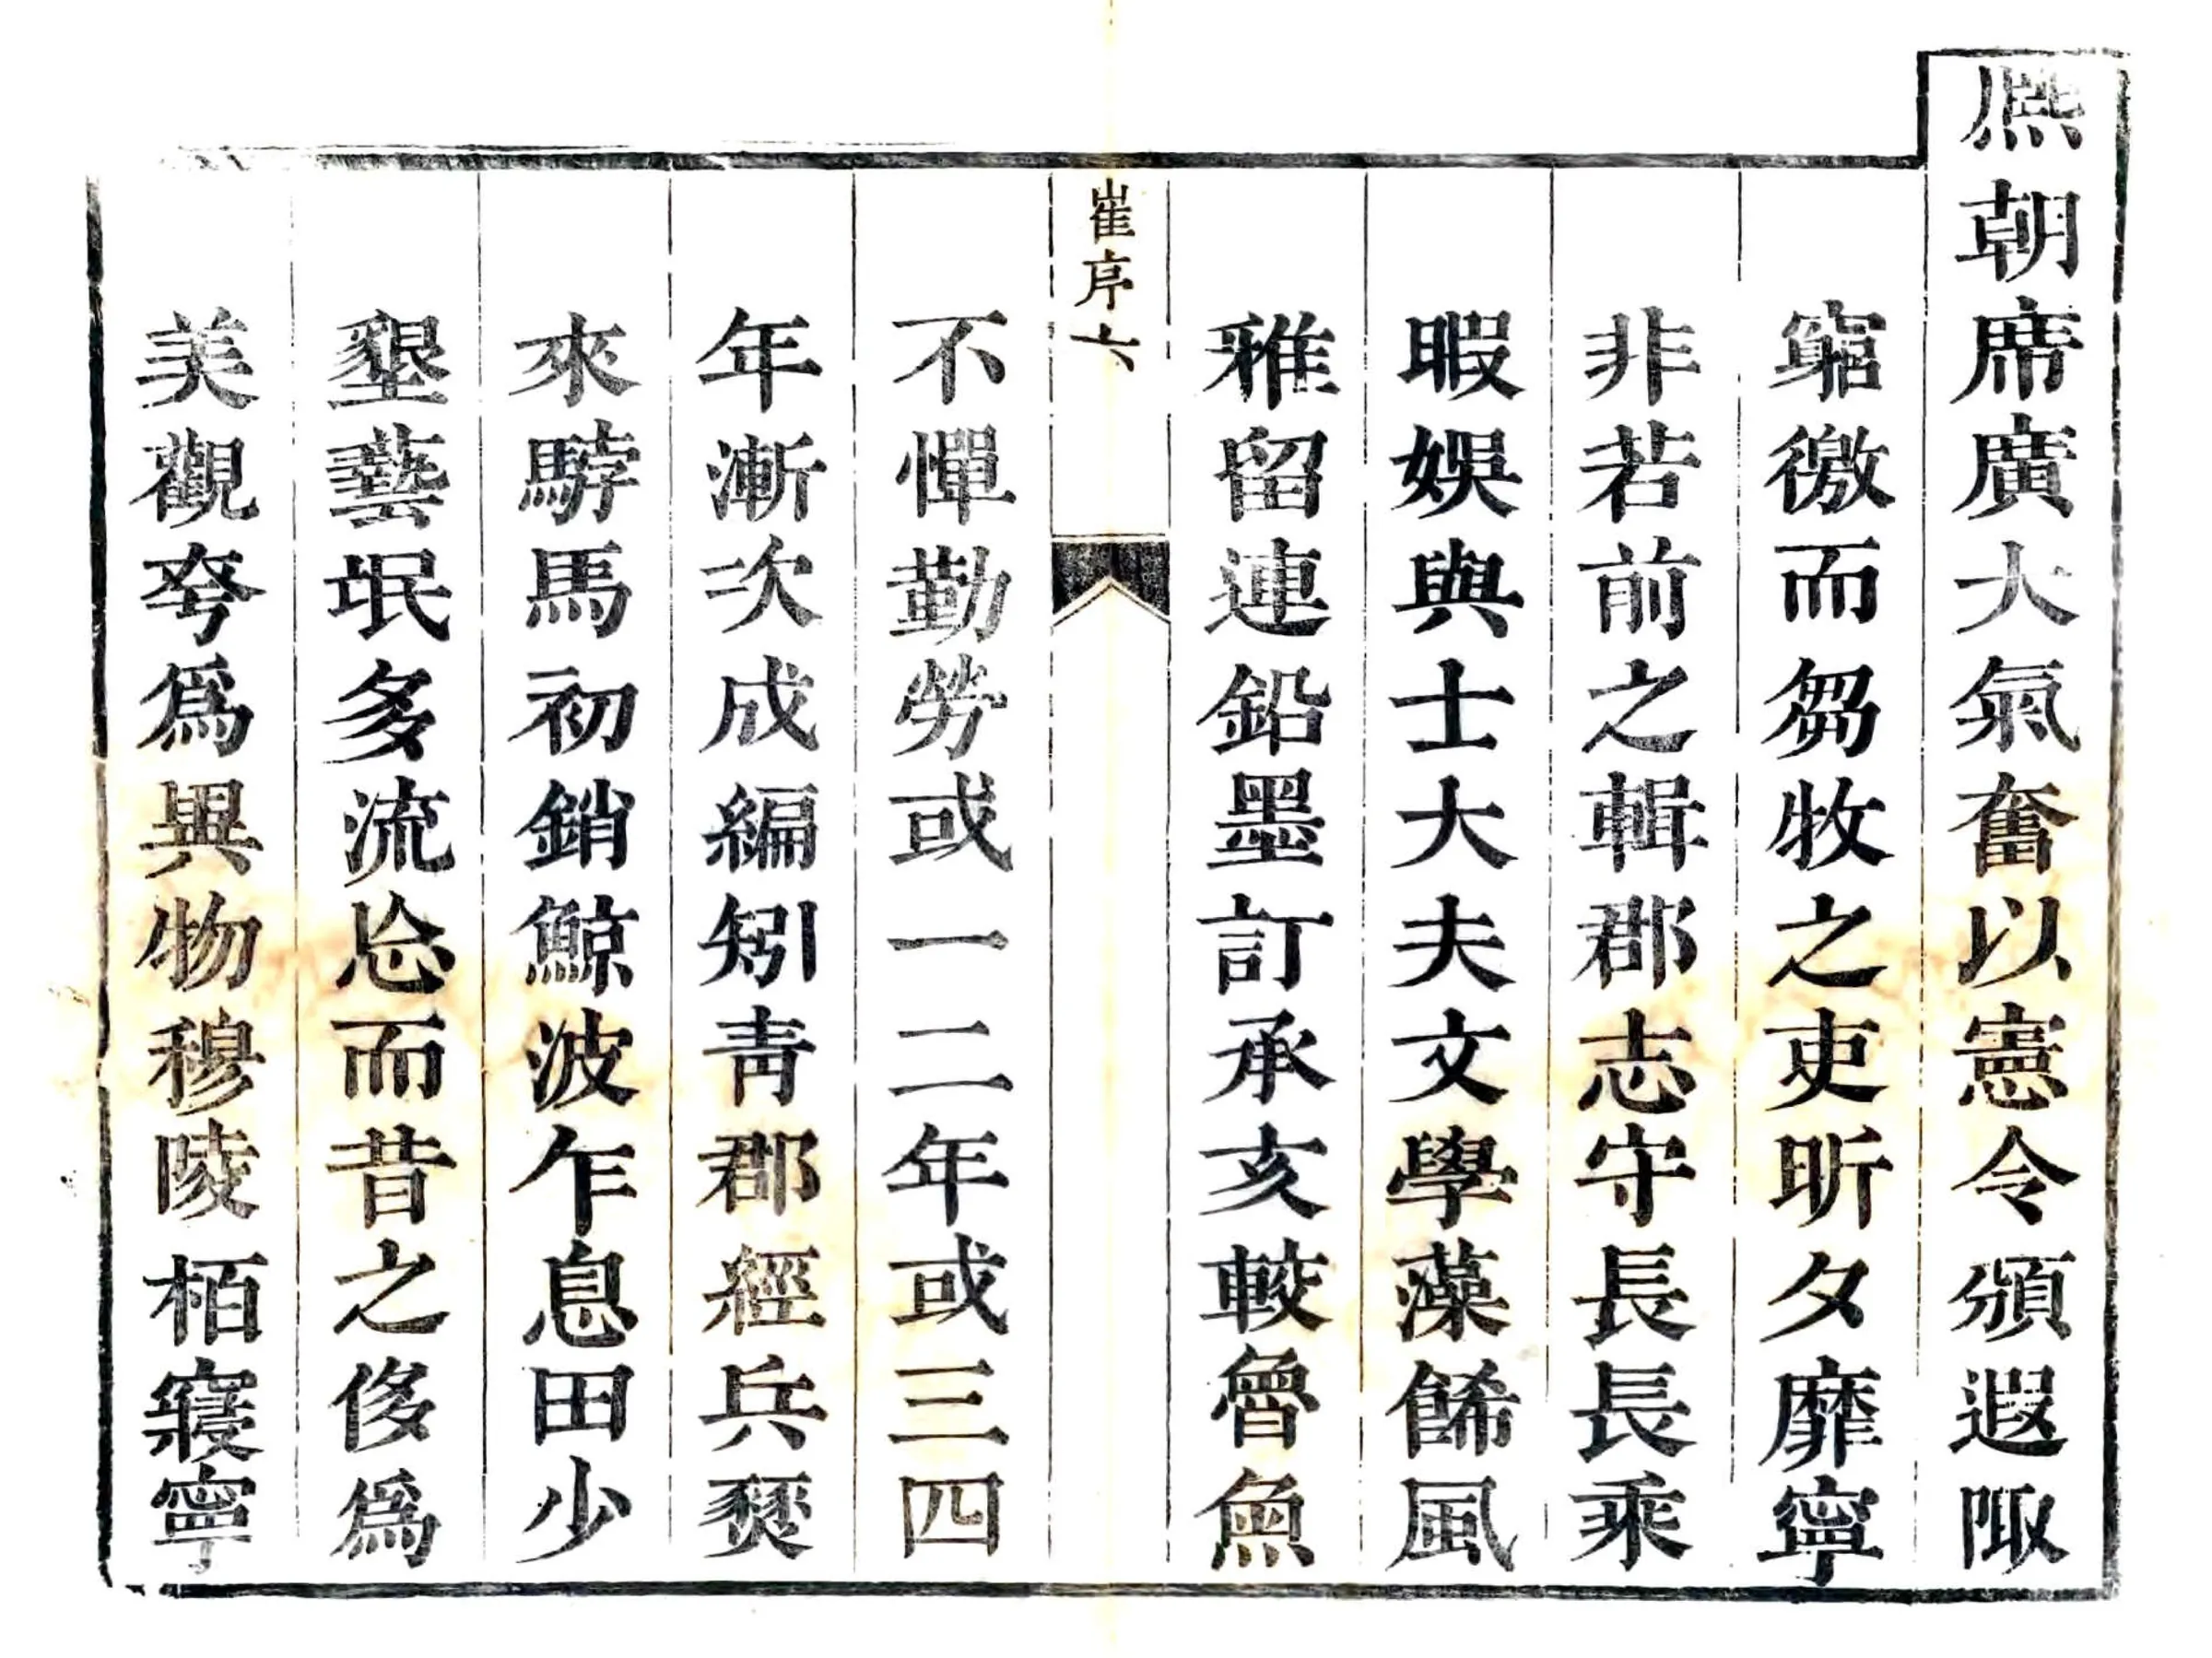 熈朝席廣大氣奮以憲令頒遐陬
窮徼而芻牧之吏昕夕靡寧
非若前之輯郡志守長長乘
暇娛與士大夫文學藻餙風
雅留連鉛墨訂承亥較魯魚
崔序六
不憚勤勞或一二年或三四
年漸次成編矧靑郡經兵燹
來騂馬初銷鯨波乍息田少
墾藝氓多流亾而昔之侈爲
美觀夸爲異物穆陵栢寢寧